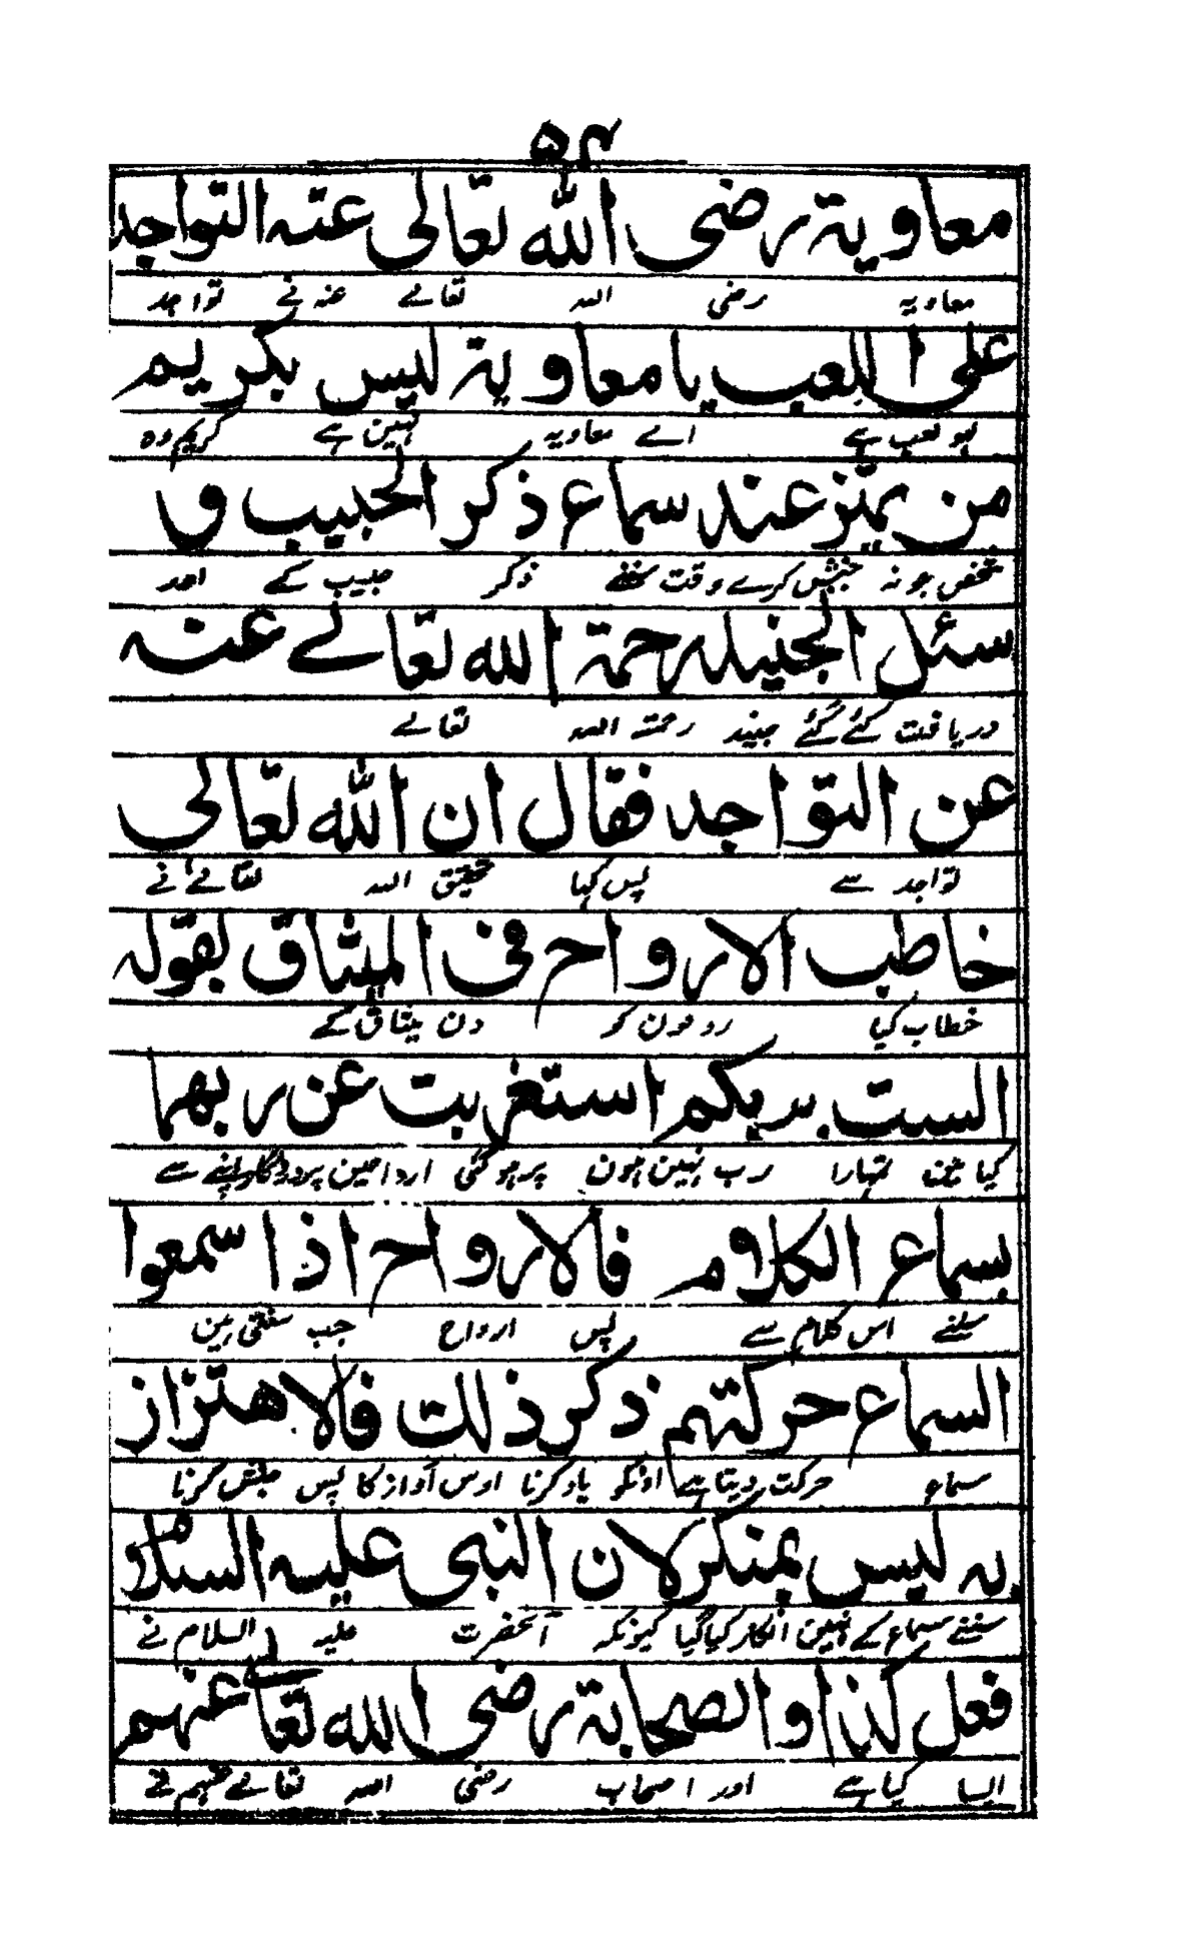 ۵۴
معاوية رضى الله تعالى عنه التواجد
معاویہ رضی اللہ تعالے عنہ نے تواجد
على اللعب يا معاوية ليس بكريم
لہو لعب ہے اے معاویہ نہین ہے کریم وہ
من يهتز عند سماع ذكر الحبيب و
شخص جو نہ جنبش کرے وقت سننے ذکر حبیب کے اور
سئل الجنيد رحمة الله تعالے عنه
دریافت کئے گئے جنید رحمتہ اللہ تعالے
عن التواجد فقال ان الله تعالى
تواجد سے پس کہا تحقیق اللہ تعالےٰ نے
خاطب الارواح فى الميثاق بقوله
خطاب کیا روحون کو دن میثاق کے
الست بربكم استغربت عن ربهما
کیا مین تمہارا رب نہین ہون پر ہو گئی ارواحین پروردگار اپنے سے
بسماع الكلام فالارواح اذا سمعوا
سننے اس کلام سے پس ارواح جب سنتی ہین
السماع حركتهم ذكر ذلك فالاهتزاز
سماع حرکت دیتا ہے اونکو یاد کرنا اوس آواز کا پس جنبش کرنا
به ليس بمنكر لان النبى عليه السلام
سننے سماع کے نہین انکار کیا گیا کیونکہ آنحضرت علیہ السلام نے
فعل كذا والصحابة رضى الله تعالے عنهم
ایسا کیا ہے اور اصحاب رضی اللہ تعالے عنہم نے